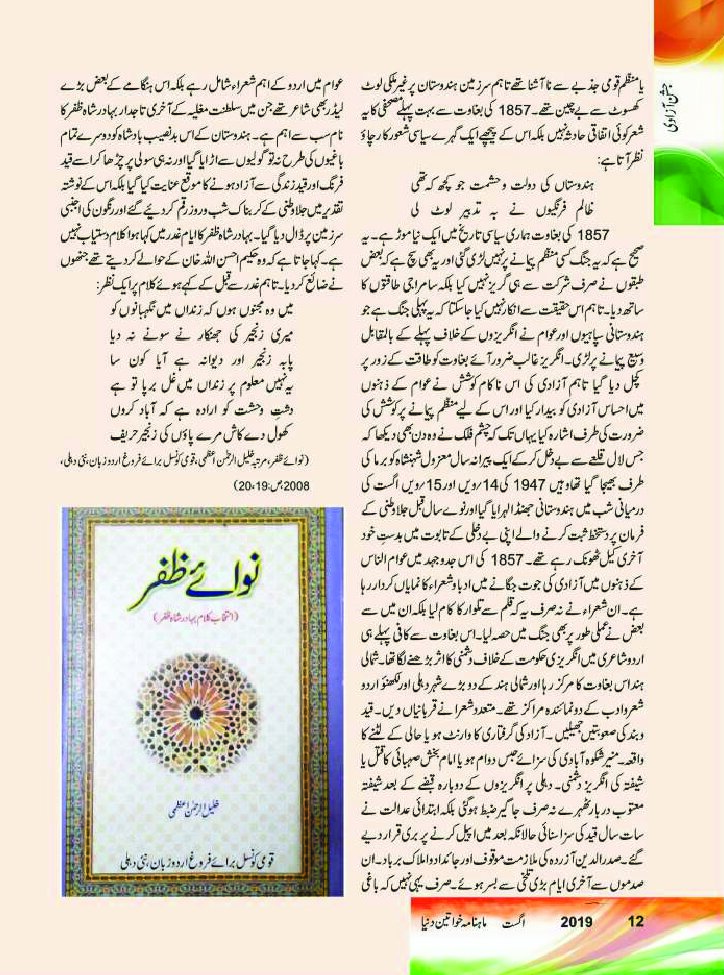 جشن آزادی
یا منظم قومی جذبے سے نا آشنا تھے تاہم سرزمین ہندوستان پر غیر ملکی لوٹ
کھسوٹ سے بے چین تھے۔ 1857 کی بغاوت سے بہت پہلے مصحفی کا یہ
شعر کوئی اتفاقی حادثہ نہیں بلکہ اس کے پیچھے ایک گہرے سیاسی شعور کا رچاؤ
نظر آتا ہے:
ہندوستاں کی دولت و حشمت جو کچھ کہ تھی
ظالم فرنگیوں نے بہ تدبیر لوٹ لی
1857 کی بغاوت ہماری سیاسی تاریخ میں ایک نیا موڑ ہے۔ یہ
صحیح ہے کہ یہ جنگ کسی منظم پیمانے پر نہیں لڑی گئی اور یہ بھی سچ ہے کہ بعض
طبقوں نے صرف شرکت سے ہی گریز نہیں کیا بلکہ سامراجی طاقتوں کا
ساتھ دیا۔ تاہم اس حقیقت سے انکار نہیں کیا جاسکتا کہ یہ پہلی جنگ ہے جو
ہندوستانی سپاہیوں اور عوام نے انگریزوں کے خلاف پہلے کے بالمقابل
وسیع پیمانے پر لڑی۔ انگریز غالب ضرور آئے بغاوت کو طاقت کے زور پر
کچل دیا گیا تاہم آزادی کی اس ناکام کوشش نے عوام کے ذہنوں
میں احساس آزادی کو بیدار کیا اور اس کے لیے منظم پیمانے پر کوشش کی
ضرورت کی طرف اشارہ کیا یہاں تک کہ چشم فلک نے وہ دن بھی دیکھا کہ
جس لال قلعے سے بے دخل کرکے ایک پیرانہ سال معزول شہنشاہ کو برما کی
طرف بھیجا گیا تھا وہیں 1947 کی 14/ویں اور 15/ویں اگست کی
درمیانی شب میں ہندوستانی جھنڈا لہرایا گیا اور نوے سال قبل جلا وطنی کے
فرمان پر دستخط ثبت کرنے والے اپنی بے دخلی کے تابوت میں بدستِ خود
آخری کیل ٹھونک رہے تھے۔ 1857 کی اس جدوجہد میں عوام الناس
کے ذہنوں میں آزادی کی جوت جگانے میں ادبا و شعراء کا نمایاں کردار رہا
ہے۔ ان شعراء نے نہ صرف یہ کہ قلم سے تلوار کا کام لیا بلکہ ان میں سے
بعض نے عملی طور پر بھی جنگ میں حصہ لیا۔ اس بغاوت سے کافی پہلے ہی
اردو شاعری میں انگریزی حکومت کے خلاف دشمنی کا اثر بڑھنے لگا تھا۔ شمالی
ہند اس بغاوت کا مرکز رہا اور شمالی ہند کے دو بڑے شہر دہلی اور لکھنؤ اردو
شعر و ادب کے دو نمائندہ مراکز تھے۔ متعدد شعرا نے قربانیاں دیں۔ قید
و بند کی صعوبتیں جھیلیں۔ آزاد کی گرفتاری کا وارنٹ ہو یا حالی کے لٹنے کا
واقعہ۔ منیر شکوہ آبادی کی سزائے حبس دوام ہو یا امام بخش صہبائی کا قتل یا
شیفتہ کی انگریز دشمنی۔ دہلی پر انگریزوں کے دوبارہ قبضے کے بعد شیفتہ
معتوب دربار ٹھہرے نہ صرف جاگیر ضبط ہوگئی بلکہ ابتدائی عدالت نے
سات سال قید کی سزا سنائی حالانکہ بعد میں اپیل کرنے پر بری قرار دیے
گئے۔ صدر الدین آزردہ کی ملازمت موقوف اور جائداد و املاک برباد۔ ان
صدموں سے آخری ایام بڑی تلخی سے بسر ہوئے۔ صرف یہی نہیں کہ باغی
عوام میں اردو کے اہم شعراء شامل رہے بلکہ اس ہنگامے کے بعض بڑے
لیڈر بھی شاعر تھے جن میں سلطنت مغلیہ کے آخری تاجدار بہادر شاہ ظفر کا
نام سب سے اہم ہے۔ ہندوستان کے اس بدنصیب بادشاہ کو دوسرے تمام
باغیوں کی طرح نہ تو گولیوں سے اڑایا گیا اور نہ ہی سولی پر چڑھا کر اسے قید
فرنگ اور قید زندگی سے آزاد ہونے کا موقع عنایت کیا گیا بلکہ اس کے نوشتہ
تقدیر میں جلا وطنی کے کربناک شب و روز رقم کردیے گئے اور رنگون کی اجنبی
سرزمین پر ڈال دیا گیا۔ بہادر شاہ ظفر کا ایام غدر میں کہا ہوا کلام دستیاب نہیں
ہے۔ کہا جاتا ہے کہ وہ حکیم احسن اللہ خان کے حوالے کردیتے تھے جنھوں
نے ضائع کردیا۔ تاہم غدر سے قبل کے کہے ہوئے کلام پر ایک نظر:
میں وہ مجنوں ہوں کہ زنداں میں نگہبانوں کو
میری زنجیر کی جھنکار نے سونے نہ دیا
پابہ زنجیر اور دیوانہ ہے آیا کون سا
یہ نہیں معلوم پر زنداں میں غل برپا تو ہے
دشتِ وحشت کو ارادہ ہے کہ آباد کروں
کھول دے کاش مرے پاؤں کی زنجیر حریف
(نوائے ظفر، مرتبہ خلیل الرحمٰن اعظمی، قومی کونسل برائے فروغ اردو زبان، نئی دہلی،
2008،ص:19،20)
نوائے ظفر
(انتخاب کلام بہادر شاہ ظفر)
خلیل الرحمٰن اعظمی
قومی کونسل برائے فروغ اردو زبان، نئی دہلی
12 2019 اگست ماہنامہ خواتین دنیا